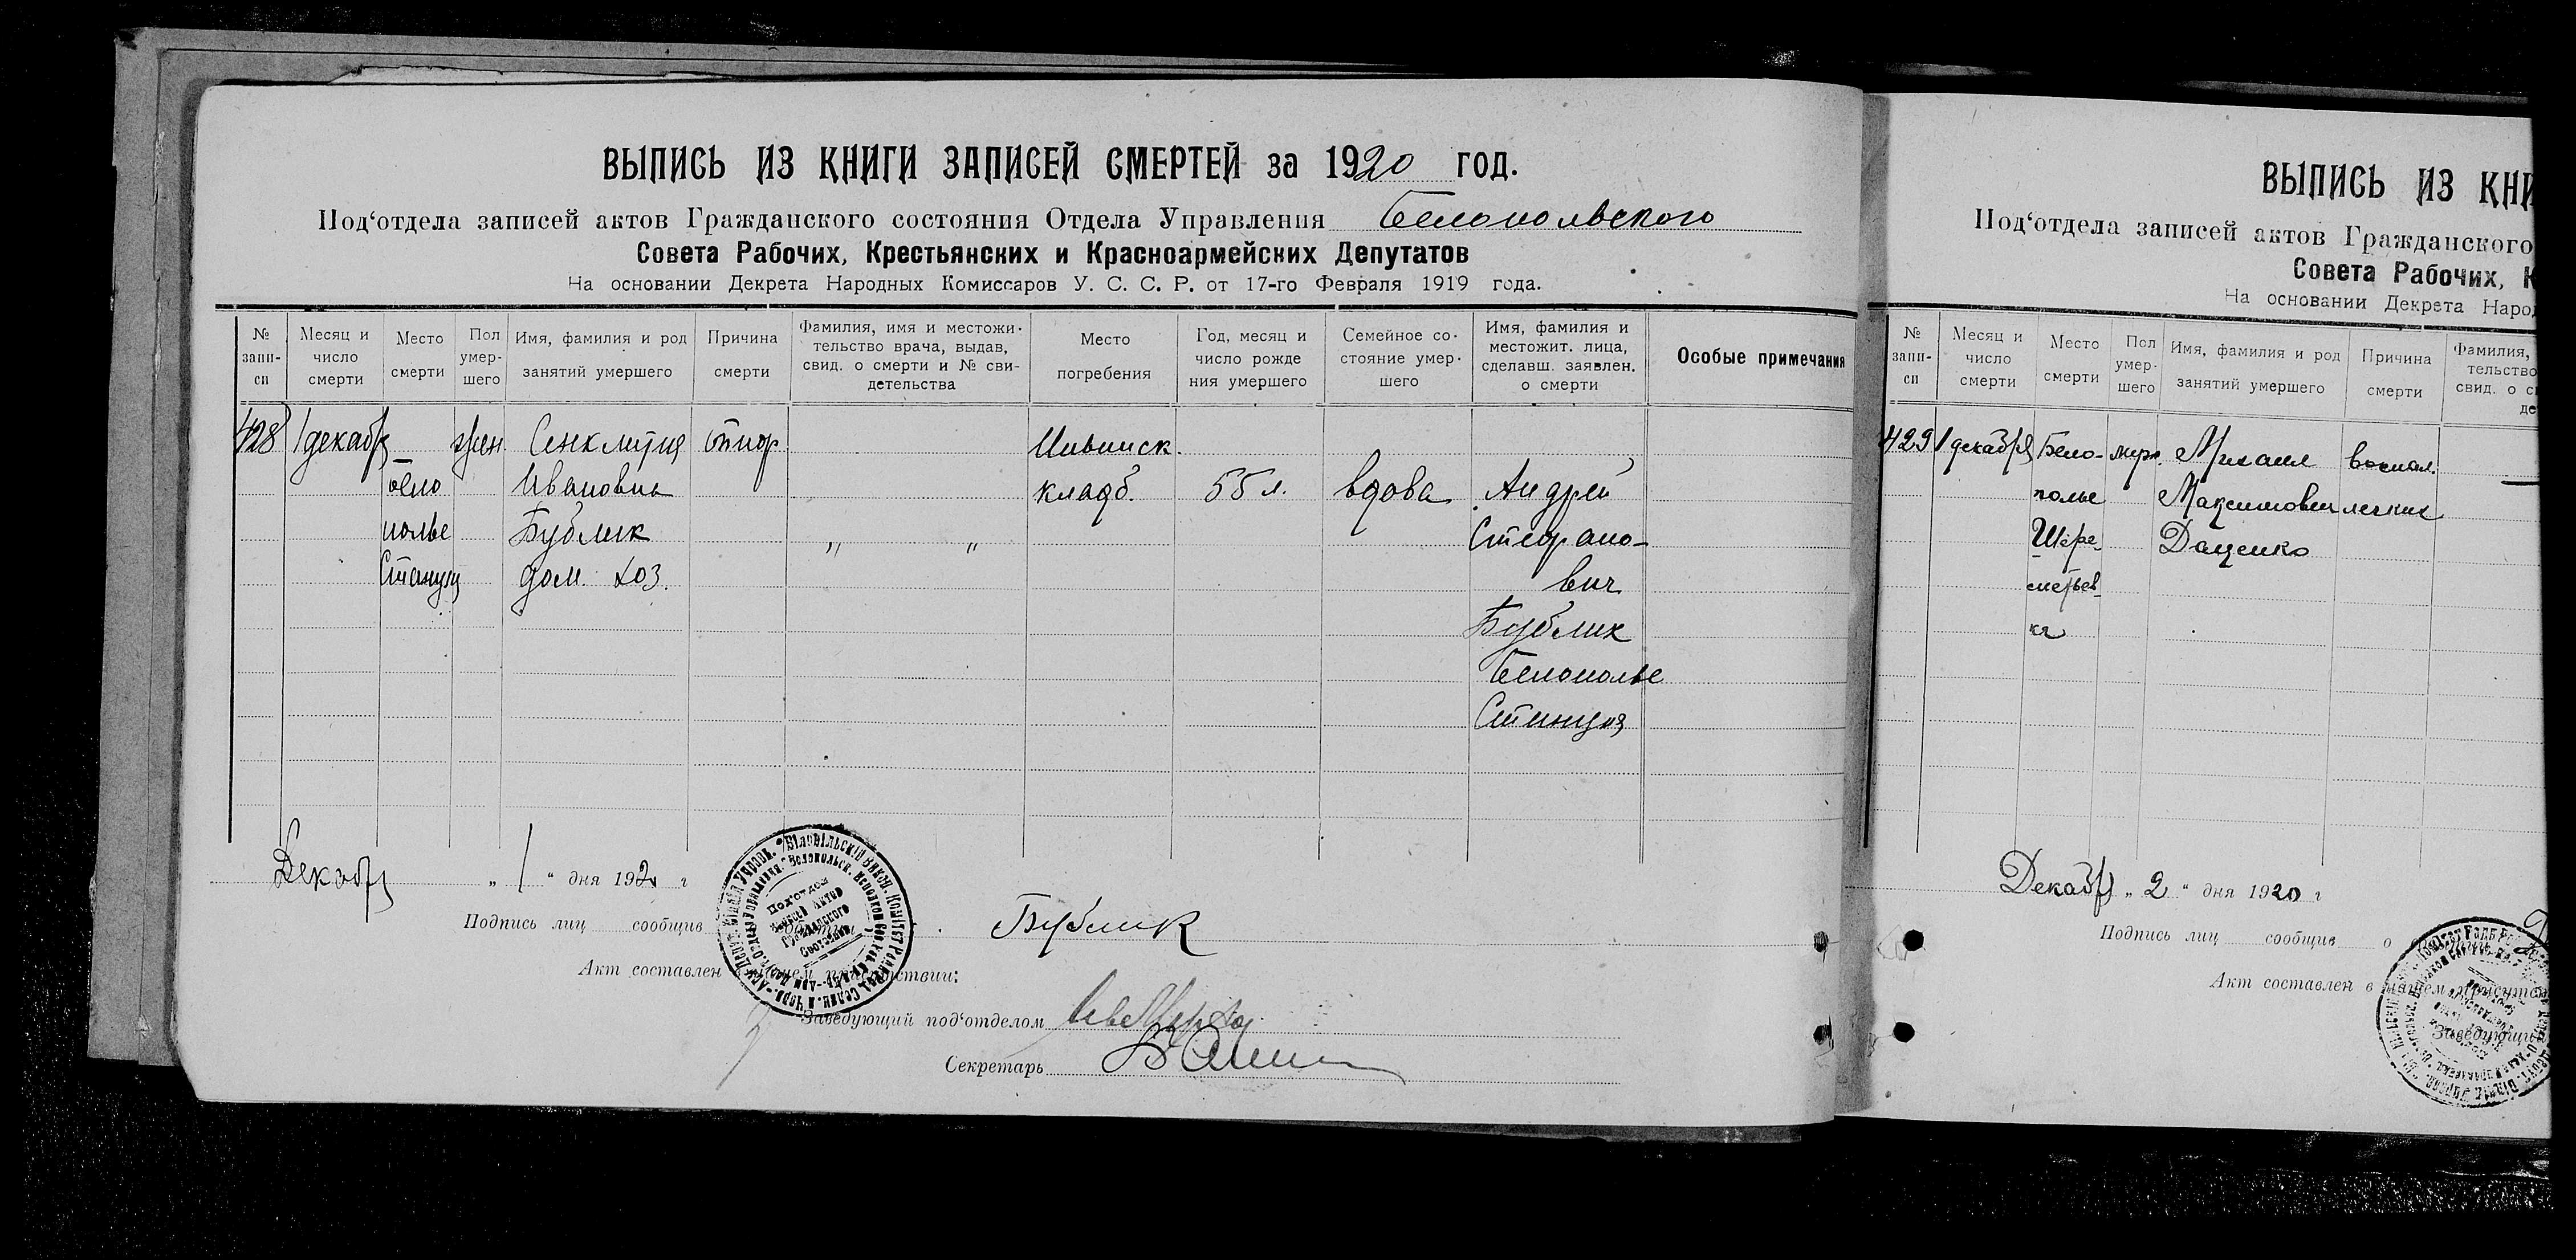 ВЫПИСЬ ИЗ КНИГИ ЗАПИСЕЙ СМЕРТЕЙ за 1920 год.
Под‘отдела записей актов Гражданского состояния Отдела Управления Белопольского
Совета Рабочих, Крестьянских и Красноармейских Депутатов
На основании Декрета Народных Комиссаров У. С. С. Р. от 17-го Февраля 1919 года.
№ запи-си
Месяц и число смерти
Место смерти
Пол умер-шего
Имя, фамилия и род занятий умершего
Причина смерти
Фамилия, имя и местожи-тельство врача, выдав, свид. о смерти и № сви-детельства
Место погребения
Год, месяц и число рожде ния умершего
Семейное со-стояние умер-шего
Имя, фамилия и местожит. лица, сделавш. заявлен. о смерти
Особые примечания
428 1 декабря жен. Сенклития
кладб. 55 л. вдова Андрей
бело Ивановна
полье Бублик „ „ Стефано-
дом. хоз. вич
Бублик
Белополье
Декабря „ 1 “ дня 1920 г
Подпись лиц сообщив Бублик
Акт составлен
Заведующий под‘отделом
Секретарь
ВЫПИСЬ ИЗ КНИ
Под‘отдела записей актов Гражданского
Совета Рабочих, К
На основании Декрета Народ
№ запи-си
Месяц и число смерти
Место смерти
Пол умер-шего
Имя, фамилия и род занятий умершего
Причина смерти
Фамилия, тельство свид. о с де
429 1 декабря Бело- муж. Михаил воспал.
полье Максимович легких
Шере- Даценко
метьев-
ка
Декабря „ 2 “ дня 1920 г
Подпись лиц сообщив о
Акт составлен в нашем присутс
Заведующий